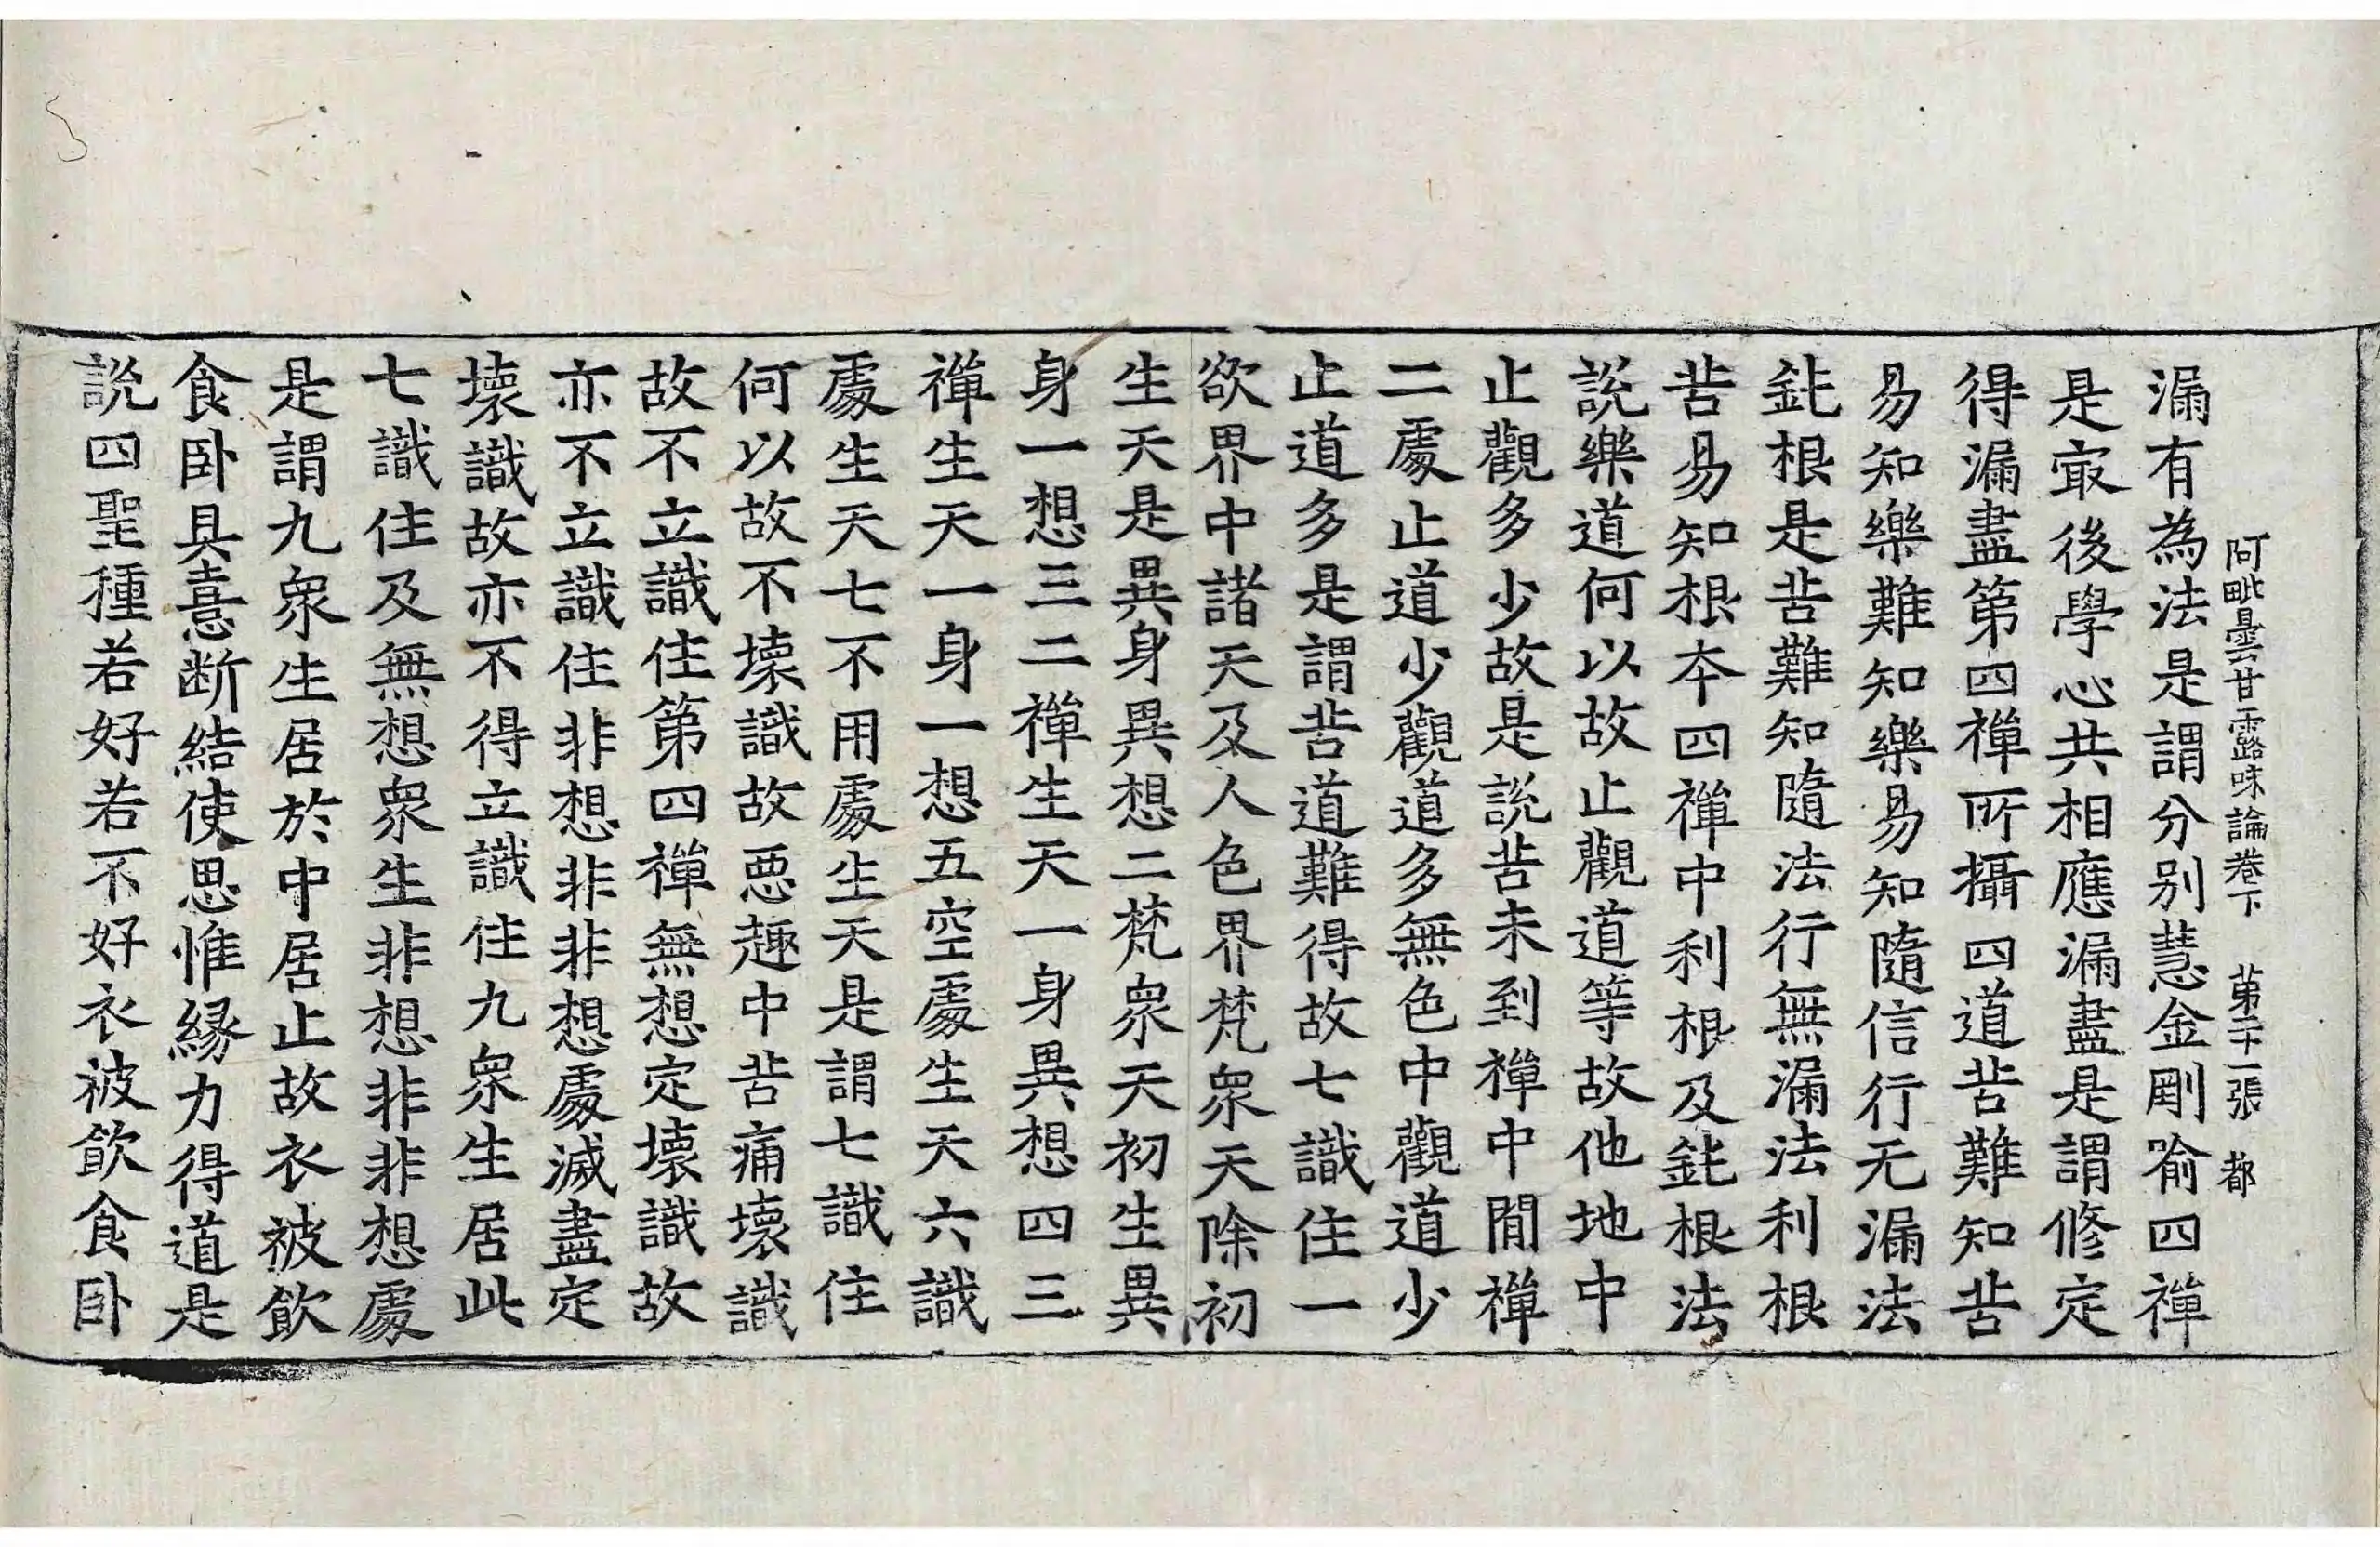 阿毗曇甘露味論卷下 第二十一張 都
漏有為法是謂分別慧金剛喻四禪
是㝡後學心共相應漏盡是謂修定
得漏盡第四禪所攝四道苦難知苦
易知樂難知樂易知隨信行无漏法
鈍根是苦難知隨法行無漏法利根
苦易知根本四禪中利根及鈍根法
說樂道何以故止觀道等故他地中
止觀多少故是說苦未到禪中間禪
二處止道少觀道多無色中觀道少
止道多是謂苦道難得故七識住一
欲界中諸天及人色界梵衆天除初
生天是異身異想二梵衆天初生異
身一想三二禪生天一身異想四三
禪生天一身一想五空處生天六識
處生天七不用處生天是謂七識住
何以故不壞識故惡趣中苦痛壞識
故不立識住第四禪無想定壞識故
亦不立識住非想非非想處滅盡定
壞識故亦不得立識住九衆生居此
七識住及無想衆生非想非非想處
是謂九衆生居於中居止故衣被飲
食卧具憙断結使思惟緣力得道是
說四聖種若好若不好衣被飲食卧